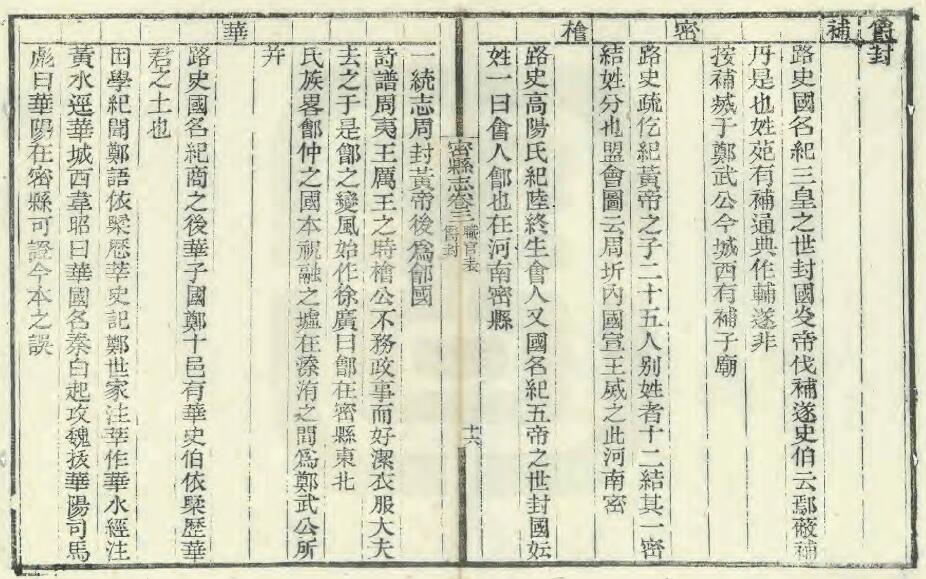 爵封
補
路史國名紀三皇之世封國炎帝伐補遂史伯云鄢蔽補
丹是也姓苑有補通典作輔遂非
按補烕于鄭武公今城西有補子廟
密
路史疏仡紀黃帝之子二十五人別姓者十二結其一密
結姓分也盟會圖云周圻內國宣王烕之此河南密
檜
路史高陽氏紀陸終生會人又國名紀五帝之世封國妘
姓一曰會人鄶也在河南密縣
密縣志卷三 職官表 爵封 十六
一統志周封黃帝後爲鄶國
詩譜周夷王厲王之時檜公不務政事而好潔衣服大夫
去之于是鄶之變風始作徐廣曰鄶在密縣東北
氏族畧鄶仲之國本祝融之墟在溱洧之間爲鄭武公所
并
華
路史國名紀商之後華子國鄭十邑有華史伯依㽥歷華
君之土也
困學紀聞鄭語依㽥歷莘史記鄭世家注莘作華水經注
黃水逕華城西韋昭曰華國名秦白起攻魏拔華陽司馬
彪曰華陽在密縣可證今本之誤